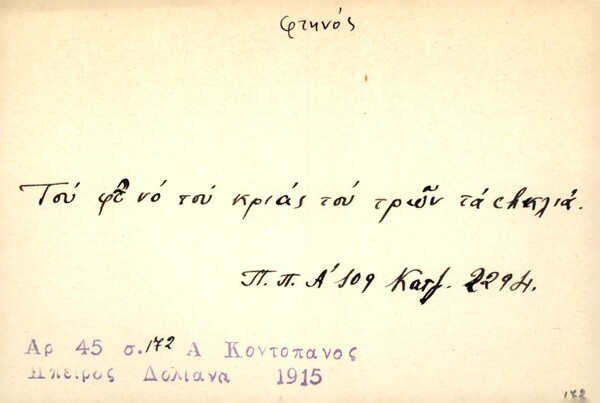 φτηνός
Τού φτ νό τού κριάς τού τρών τά σκλιά.
Π. Π. Α' 109 Κατζ. 2294.
Αρ 45 σ. 172 Α Κοντοπανος
Ηπειρος Δολιανα 1915
172